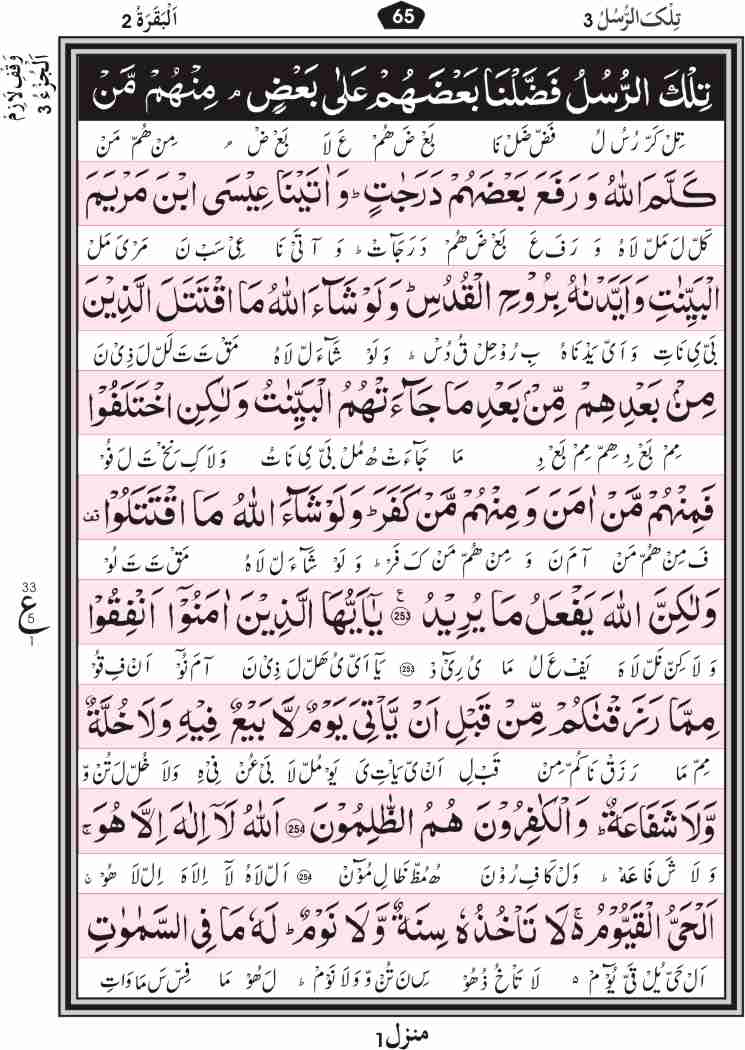 تِلْكَ الرُّسُلُ 3
65
اَلْبَقَرَةُ 2
اَلْجُزْءُ 3
وَقْفِ لَازِمْ
تِلْكَ الرُّسُلُ فَضَّلْنَا بَعْضَهُمْ عَلٰى بَعْضٍ ۘ مِنْهُمْ مَّنْ
تِلْ كَرّ رُسُ لُ فَضّ ضَلْ نَا بَعْ ضَ هُمْ عَ لَا بَعْ ضْ ۘ مِنْ هُمّ مَنْ
كَلَّمَ اللّٰهُ وَ رَفَعَ بَعْضَهُمْ دَرَجٰتٍ ؕ وَ اٰتَيْنَا عِيْسَى ابْنَ مَرْيَمَ
كَلّ لَ مَلّ لَا هُ وَ رَ فَ عَ بَعْ ضَ هُمْ دَ رَ جَا تْ ؕ وَ آ تَیْ نَا عِیْ سَبْ نَ مَرْ یَ مَلْ
الْبَيِّنٰتِ وَ اَيَّدْنٰهُ بِرُوْحِ الْقُدُسِ ؕ وَ لَوْ شَآءَ اللّٰهُ مَا اقْتَتَلَ الَّذِيْنَ
بَیّ یِ نَا تِ وَ اَیّ یَدْ نَا هُ بِ رُوْ حِلْ قُ دُسْ ؕ وَ لَوْ شَآ ءَلّ لَا هُ مَقْ تَ تَ لَلّ لَ ذِیْ نَ
مِنْۢ بَعْدِهِمْ مِّنْۢ بَعْدِ مَا جَآءَتْهُمُ الْبَيِّنٰتُ وَلٰكِنِ اخْتَلَفُوْا
مِمْ بَعْ دِ هِمّ مِمْ بَعْ دِ مَا جَآ ءَتْ هُ مُلْ بَیّ یِ نَا تُ وَ لَا كِ نِخْ تَ لَ فُوْ
فَمِنْهُمْ مَّنْ اٰمَنَ وَ مِنْهُمْ مَّنْ كَفَرَ ؕ وَ لَوْ شَآءَ اللّٰهُ مَا اقْتَتَلُوْا ۫
فَ مِنْ هُمّ مَنْ آ مَ نَ وَ مِنْ هُمّ مَنْ كَ فَرْ ؕ وَ لَوْ شَآ ءَلّ لَا هُ مَقْ تَ تَ لُوْ
33
ع
5
1
وَلٰكِنَّ اللّٰهَ يَفْعَلُ مَا يُرِيْدُ ع 253 يٰۤاَيُّهَا الَّذِيْنَ اٰمَنُوْۤا اَنْفِقُوْا
وَ لَا كِنّ نَلّ لَا هَ یَفْ عَ لُ مَا یُ رِیْٓ دْ 253 یَآ اَیّ یُ هَلّ لَ ذِیْ نَ آ مَ نُوْٓ اَنْ فِ قُوْ
مِمَّا رَزَقْنٰكُمْ مِّنْ قَبْلِ اَنْ يَّاْتِيَ يَوْمٌ لَّا بَيْعٌ فِيْهِ وَلَا خُلَّةٌ
مِمّ مَا رَ زَقْ نَا كُمّ مِنْ قَبْ لِ اَنْ یّ یَاْ تِ یَ یَوْ مُلّ لَا بَیْ عُنْ فِیْ هِ وَ لَا خُلّ لَ تُنْ وّ
وَّلَا شَفَاعَةٌ ؕ وَالْكٰفِرُوْنَ هُمُ الظّٰلِمُوْنَ 254 اَللّٰهُ لَاۤ اِلٰهَ اِلَّا هُوَ ۚ
وَ لَا شَ فَا عَهْ ؕ وَلْ كَا فِ رُوْ نَ هُ مُظّ ظَا لِ مُوْٓنْ 254 اَلّ لَا هُ لَآ اِلَا هَ اِلّ لَا هُوْ ۚ
اَلْحَيُّ الْقَيُّوْمُ ۚ لَا تَاْخُذُهٗ سِنَةٌ وَّلَا نَوْمٌ ؕ لَهٗ مَا فِي السَّمٰوٰتِ
اَلْ حَیّ یُلْ قَیّ یُوْٓ مْ ۵ لَا تَاْ خُ ذُ هُوْ سِ نَ تُنْ وّ وَ لَا نَوْمْ ؕ لَ هُوْ مَا فِسّ سَ مَا وَا تِ
منزل 1